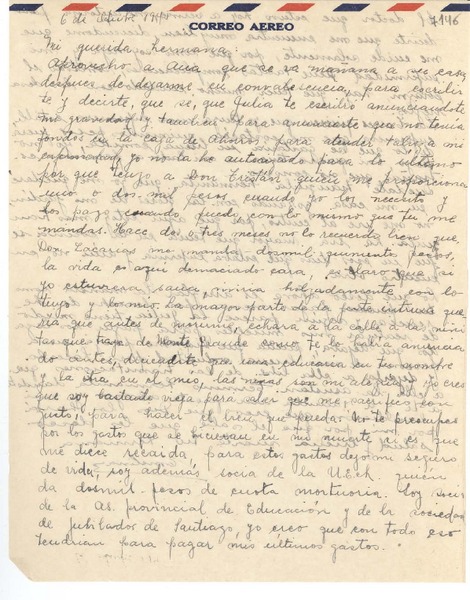 CORREO AEREO
7146
6 de 1941
Mi querida hermana:
Aprovecho a Ana que se va mañana a su casa
después de dejarme en convalecencia, para escribir
te y decirte, que se, que Julia te escribió anunciandote
mi gravedad y tambien para anunciarte que no tenía
fondos en la caja de Ahorros para atender a mi
enfermedad, yo no la he autorizado para lo ultimo
por que tengo a Don Tristan, quien me proporciona
uno o dos mil pesos cuando yo los necesito y
los pago cuando puedo, con lo mismo que tu me
mandas. Hace dos o tres meses no lo recuerdo bien que,
Don Zacarias me manda dosmil quinientos pesos,
la vida es aqui demaciado cara, es claro que si
yo estuviera sana, viviria holgadamente con lo
tuyo y lo mio. La mayor parte de la gente
que antes de morirme, echara a la calle a las niñi
tas que traje de Monte Grande como te lo habia anuncia
do antes, diciendote que una educaria en tu nombre
y la otra en el mio, las nenas son mi alegria y yo creo
que soy bastante vieja para saber que me sacrifico con
gusto, para hacer el bien que puedo. No te preocupes
por los gastos que se hicieran en mi muerte si es que
me diese recaida, para estos gastos dejo mi seguro
de vida, soy además socia de la U.E.ch. quien
da dosmil pesos de cuota mortuoria. Soy socia
de la As. provincial de Educación y de la sociedad
de jubilados de Santiago, yo creo que con todo eso
tendrian para pagar mis últimos gastos.